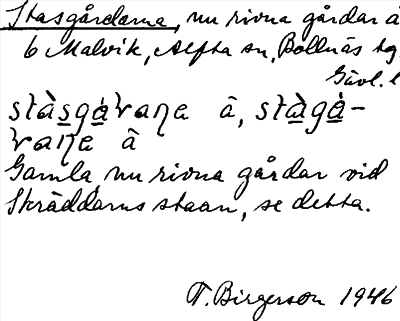 Stasgårdarna, nu rivna gårdar å
6 Malvik, Alfta sn, Bollnäs tg.
Gävl. l
stàsgàraɳe â, stàgà-
raɳe â
Gamla, nu rivna gårdar vid
Skräddarns staan, se detta.
T. Birgerson 1946